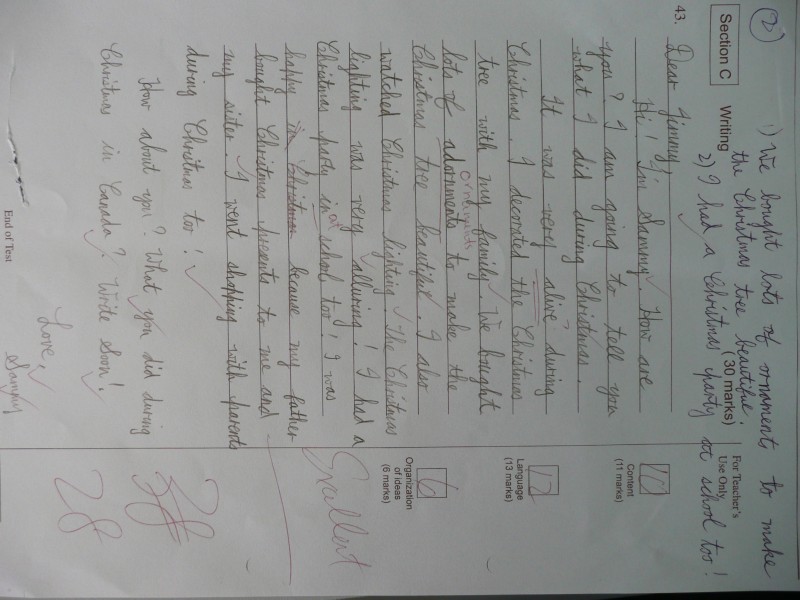 (2)
1) We bought lots of ornaments to make
the Christmas tree beautiful.
2) I had a Christmas party at school too!
Section C Writing (30 marks)
For Teacher's
Use Only
43.
Dear Jimmy,
Hi! I'm Sammy. How are
you? I am going to tell you
what I did during Christmas.
It was very alive during
Christmas. I decorated the Christmas
tree with my family. We bought
ornaments
lots of adornments to make the
Christmas tree beautiful. I also
watched Christmas lighting. The Christmas
lighting was very alluring! I had a
at
Christmas party in school too! I was
happy in Christmas because my father
bought Christmas presents to me and
my sister. I went shopping with parents
during Christmas too!
How about you? What you did during
Christmas in Canada? Write soon!
Love,
Sammy
End of Test
Content
(11 marks)
10
Language
(13 marks)
12
Organization
of ideas
(6 marks)
6
Excellent
28